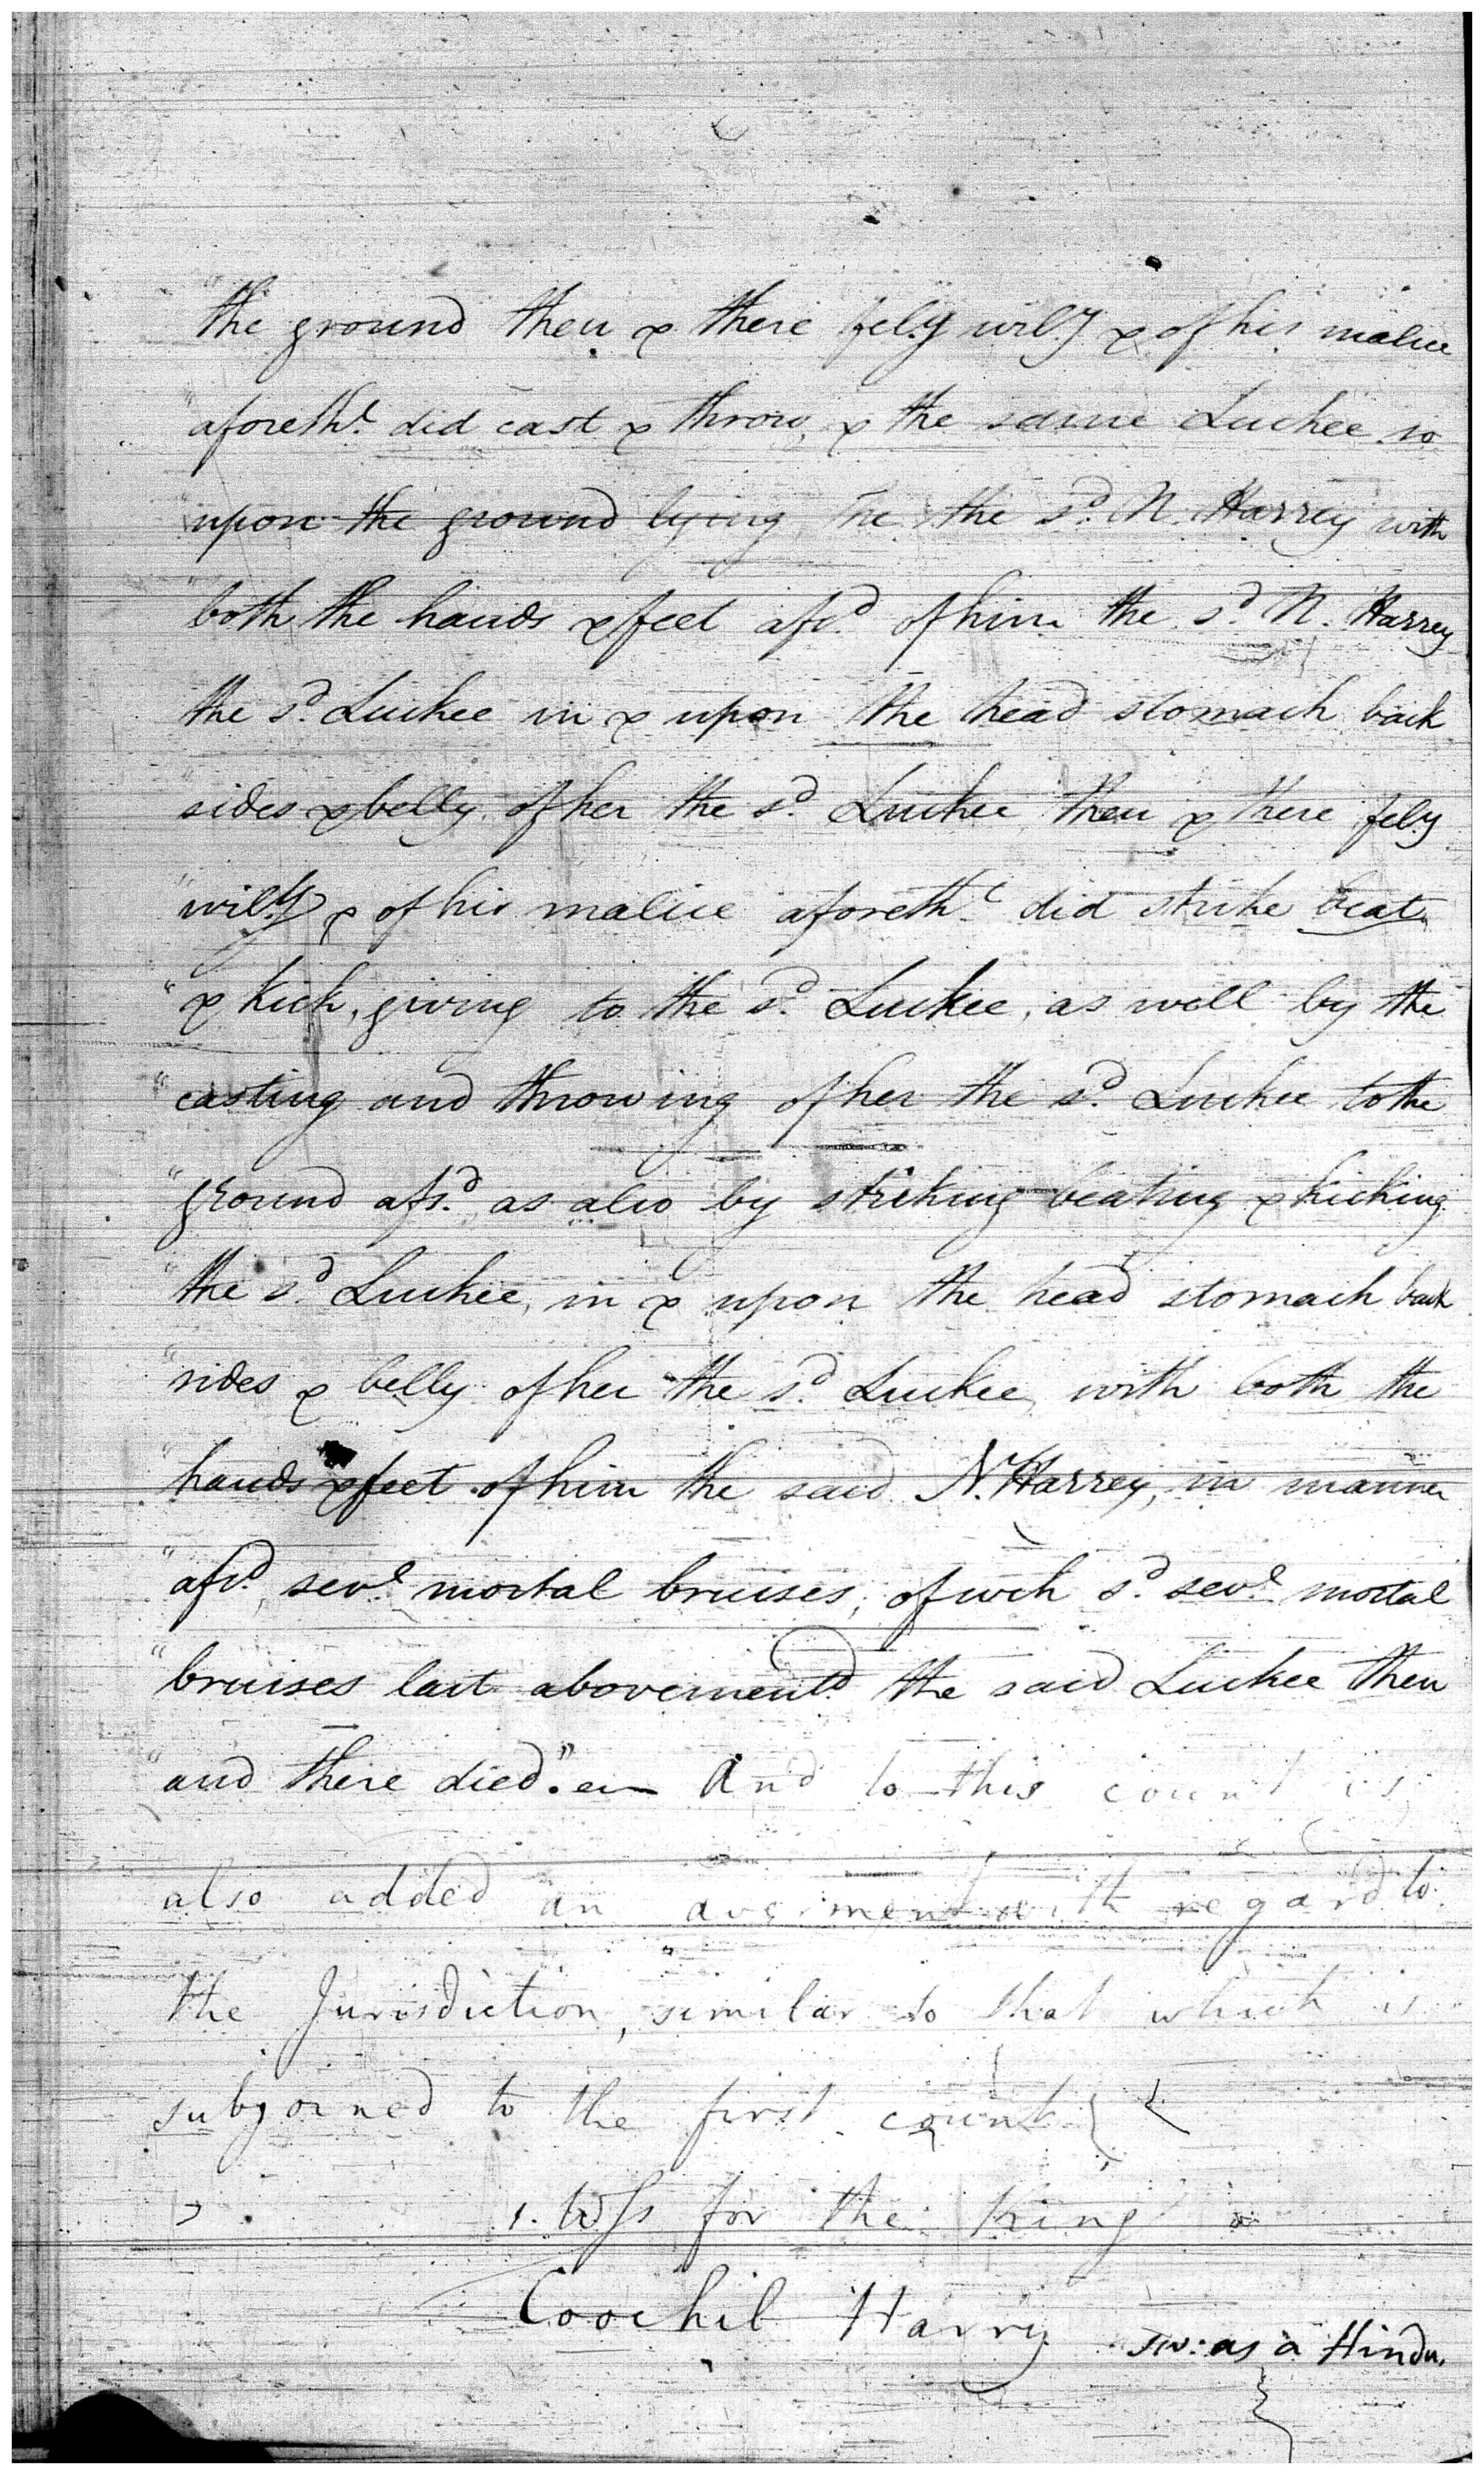 "the ground then & there fely wily & of his malice
"aforethd did cast & throw, & the same Luckee so
"upon the ground lying, he the sd. N. Harrey with
"both the hands & feet afsd. of him the sd. N. Harrey
the sd. Luckee in & upon the head stomach back
"sides & belly of her the sd. Luckee then & there fely
"wily & of his malice aforetht did strike beat
"& kick, giving to the sd. Luckee, as well by the
"casting and throwing of her the sd. Luckee to the
"ground afsd. as also by striking beating & kicking
"the sd. Luckee, in & upon the head stomach back
"sides & belly of her the sd. Luckee, with both the
"hands & feet of him the said N. Harrey, in manner
"afsd. sevl. mortal bruises, of wch sd. sevl. mortal
"bruises last abovementd. the said Luckee then
"and there died." And to this count is
also added an averment with regard to
the Jurisdiction, similar to that which is
subjoined to the first count
1. Wss for the King
Coochil Harry sw: as a Hindu.